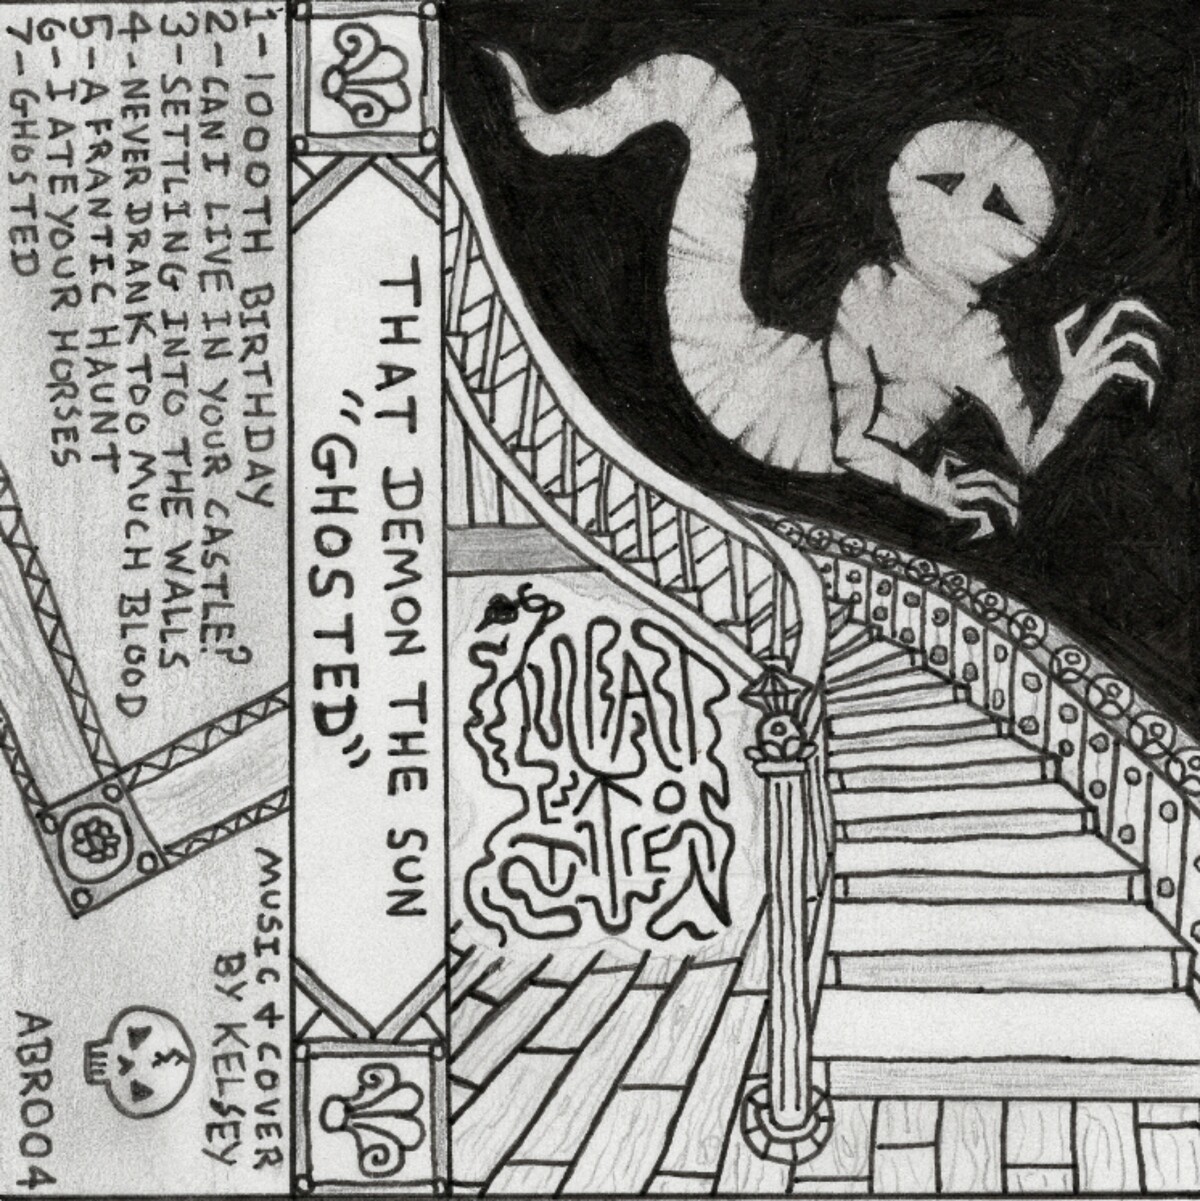 1-1000TH BIRTHDAY
2-CAN I LIVE IN YOUR CASTLE?
3-SETTLING INTO THE WALLS
4-NEVER DRANK TOO MUCH BLOOD
5-A FRANTIC HAUNT
6-I ATE YOUR HORSES
7-GHOSTED
MUSIC & COVER
BY KELSEY
ABR004
THAT DEMON THE SUN
"GHOSTED"